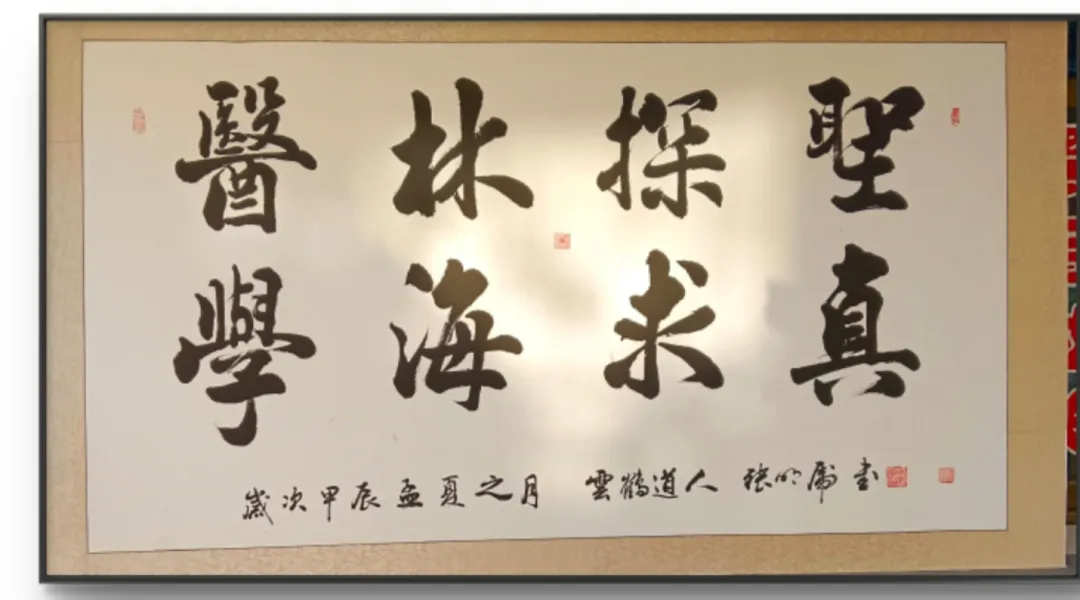 醫學
林海
探求
聖真
歲次甲辰孟夏之月 雲鶴道人 書